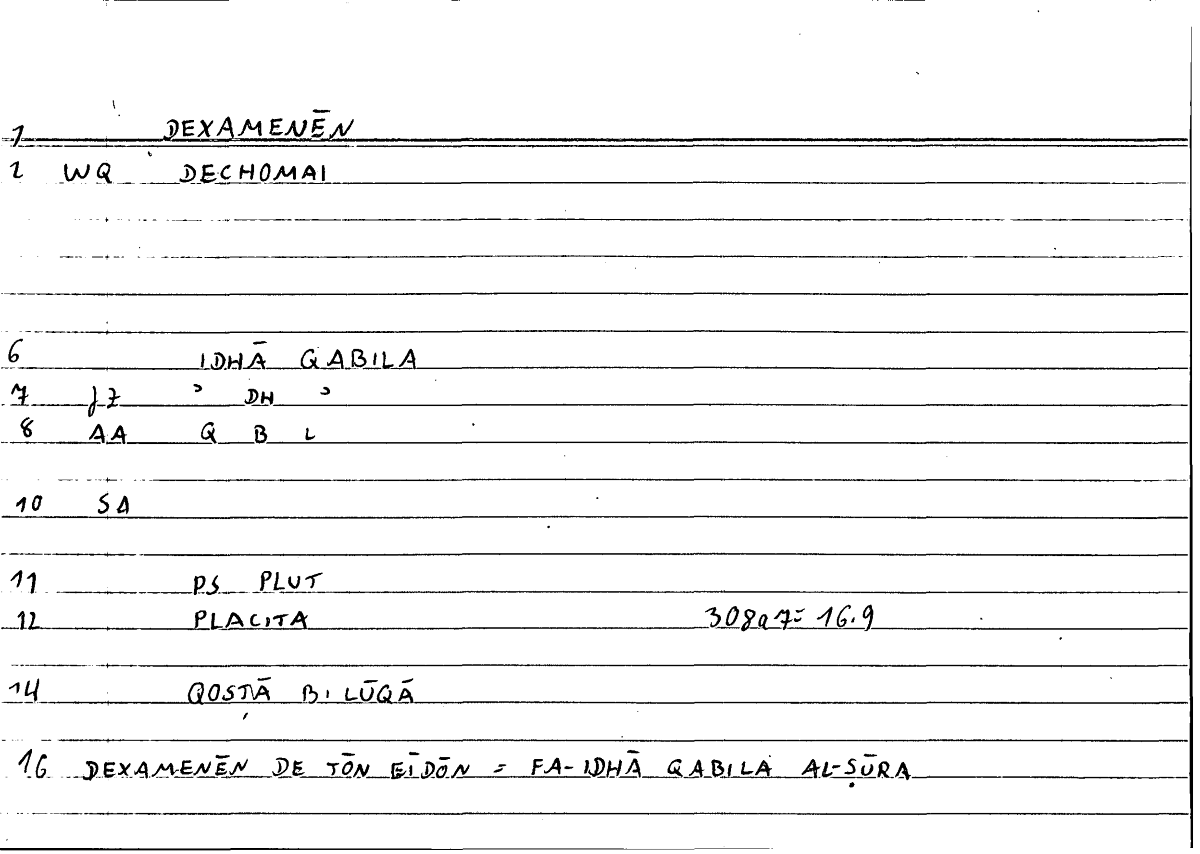 1 DEXAMENĒN
2 WQ DECHOMAI
6 IDHĀ QABILA
7 JZ ʾ DH ʾ
8 AA Q B L
10 SA
11 PS PLUT
12 PLACITA 308a7= 16.9
14 QOSṬĀ B. LŪQĀ
16 DEXAMENĒN DE TŌN EĪDŌN = FA-IDHĀ QABILA AL-ṢŪRA